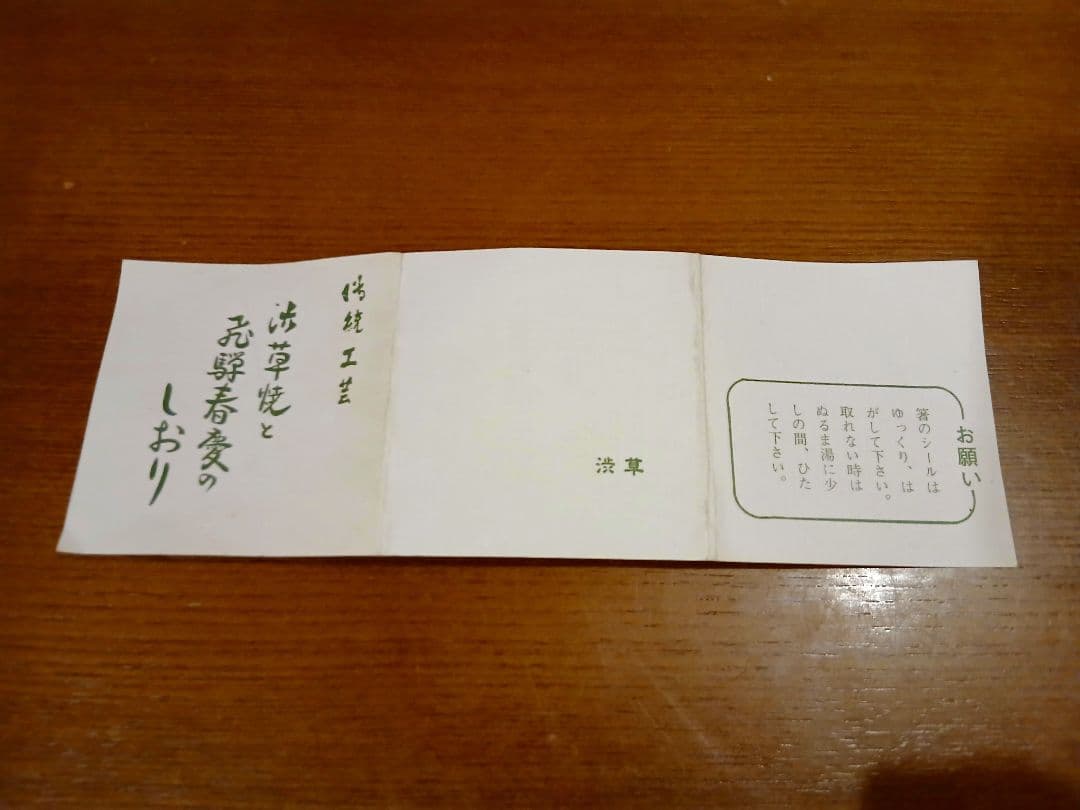 お願い
箸のシールは
ゆっくり、は
がして下さい。
取れない時は
ぬるま湯に少
しの間、ひた
して下さい。
渋草
傳統工芸
渋草焼と
飛騨春慶の
しおり